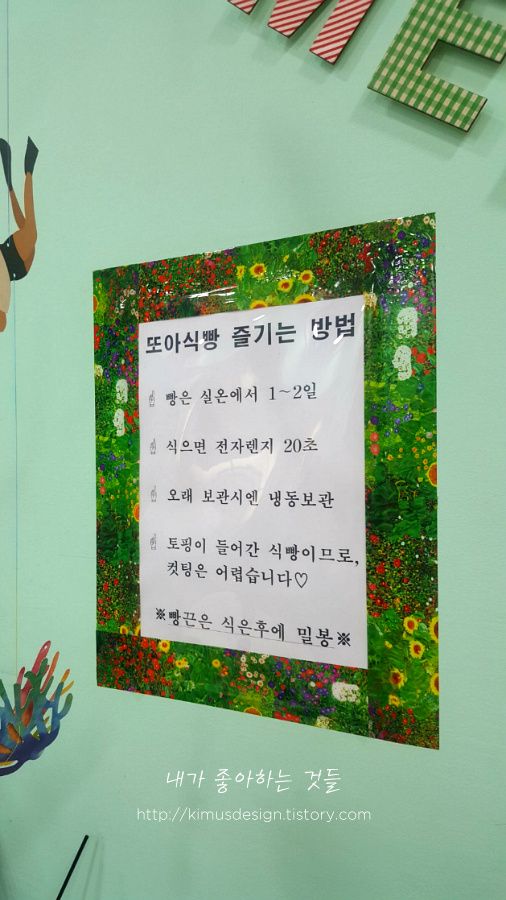 ME
또아식빵 즐기는 방법
빵은 실온에서 1~2일
식으면 전자렌지 20초
오래 보관시엔 냉동보관
토핑이 들어간 식빵이므로,
컷팅은 어렵습니다♡
※빵끈은 식은후에 밀봉※
내가 좋아하는 것들
http://kimusdesign.tistory.com